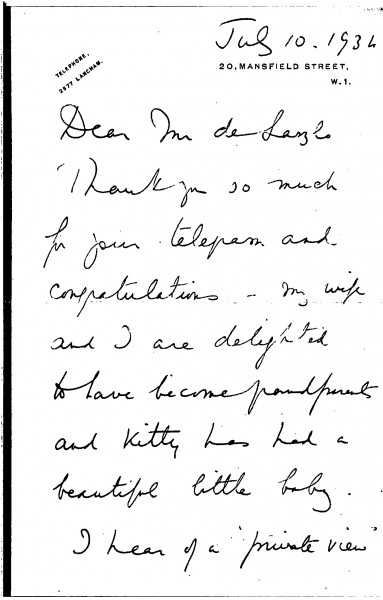 July 10. 1934
TELEPHONE,
2877 LANGHAM.
20, MANSFIELD STREET,
W.1.
Dear Mr de Laszlo
Thank you so much
for your telegram and
congratulations – my wife
and I are delighted
to have become grandparents
and Kitty has had a
beautiful little baby.
I hear of a "private view"